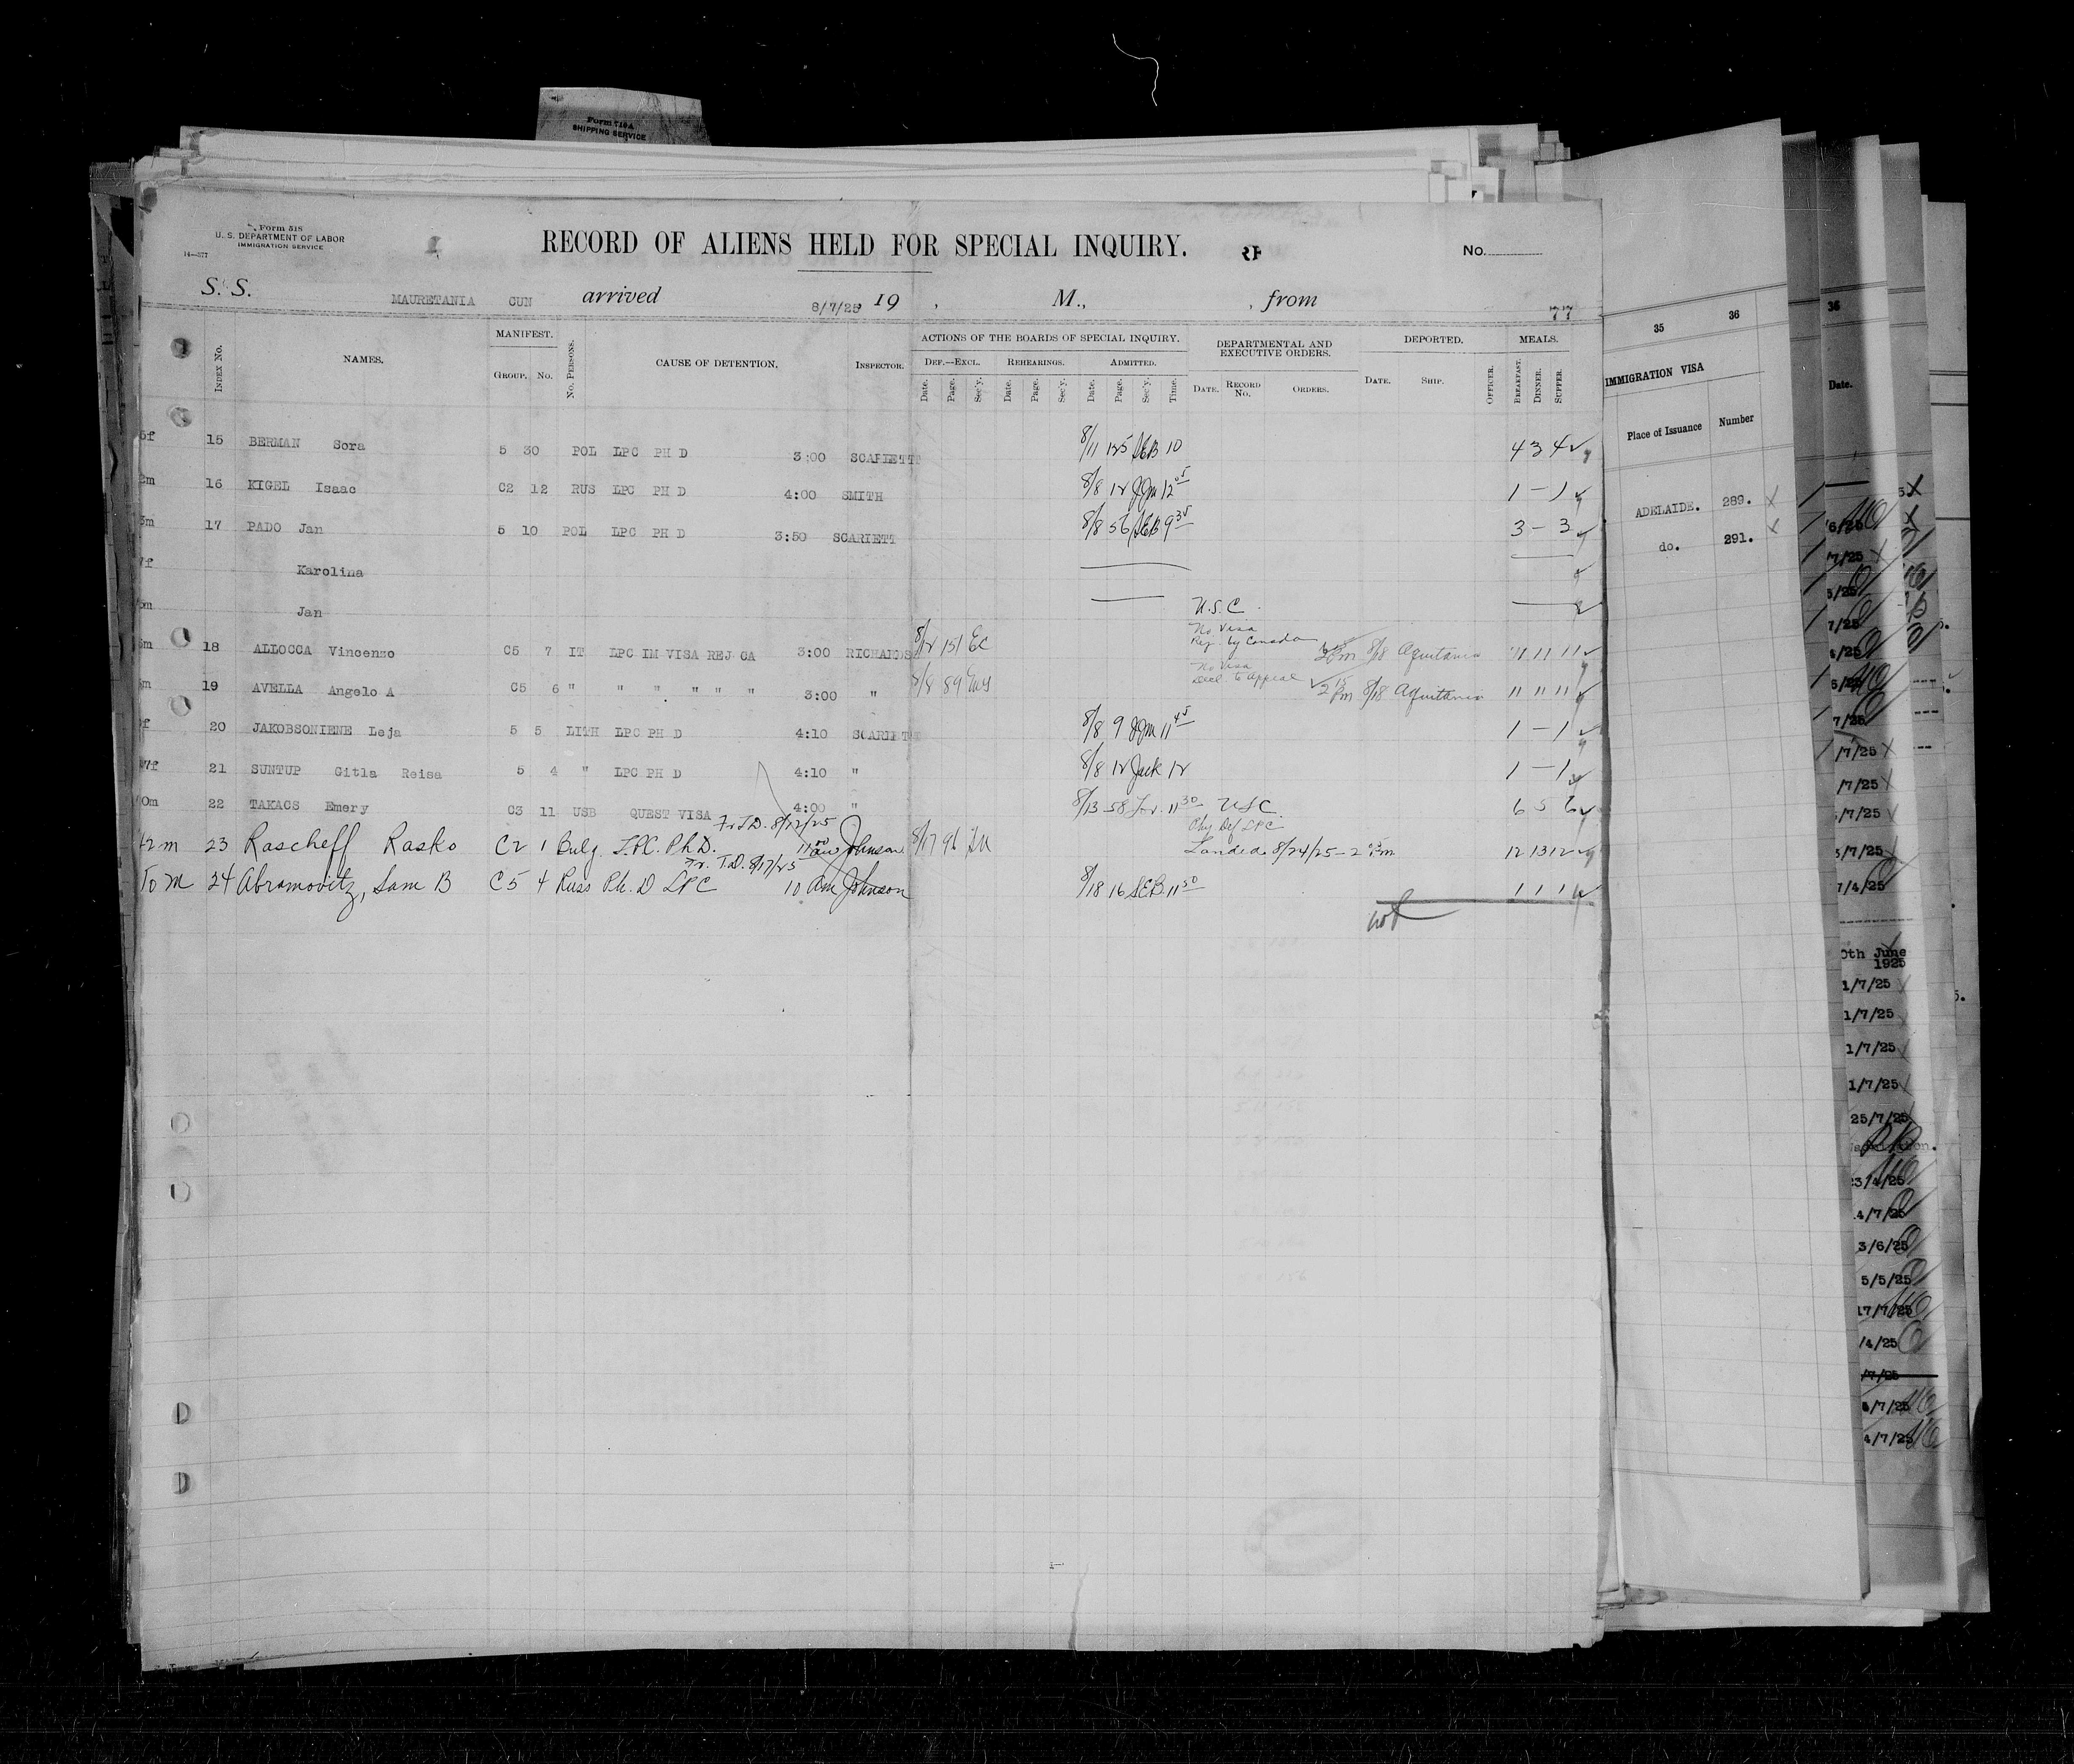 Form 719A
SHIPPING SERVICE
Form 518
U. S. DEPARTMENT OF LABOR
IMMIGRATION SERVICE
14—377
RECORD OF ALIENS HELD FOR SPECIAL INQUIRY.
No.
S. S. MAURETANIA CUN arrived 8/7/25 19 , M., , from
77
INDEX No. NAMES. MANIFEST. GROUP. No. No. PERSONS. CAUSE OF DETENTION. INSPECTOR. ACTIONS OF THE BOARDS OF SPECIAL INQUIRY. DEPARTMENTAL AND EXECUTIVE ORDERS. DEPORTED. MEALS.
DEF.—EXCL. REHEARINGS. ADMITTED.
Date. Page. Sec'y. Date. Page. Sec'y. Date. Page. Sec'y. Time. DATE. RECORD No. ORDERS. DATE. SHIP. OFFICER. BREAKFAST. DINNER. SUPPER.
15 BERMAN Sora 5 30 POL LPC PH D 3:00 SCARLETT 8/11 125 SEB 10 4 3 4
16 KIGEL Isaac C2 12 RUS LPC PH D 4:00 SMITH 8/8 12 JJM 12 05 1 – 1
17 PADO Jan 5 10 POL LPC PH D 3:50 SCARLETT 8/8 56 SEB 9 35 3 – 3
Karolina
Jan U.S.C.
18 ALLOCCA Vincenzo C5 7 IT LPC IM VISA REJ CA 3:00 RICHARDS 8/12 151 EC No Visa Rej. by Canada 8/18 Aquitania 11 11 11
19 AVELLA Angelo A C5 6 " " " " " " 3:00 " 8/8 89 No Visa Decl. to Appeal 2 15 Pm 8/18 Aquitania 11 11 11
20 JAKOBSONIENE Leja 5 5 LITH LPC PH D 4:10 SCARLETT 8/8 9 JJM 11 45 1 – 1
21 SUNTUP Gitla Reisa 5 4 " LPC PH D 4:10 " 8/8 12 Jack 12 1 – 1
22 TAKACS Emery C3 11 USB QUEST VISA 4:00 " 8/13 58 11 30 USC 6 5 6
42m 23 Rascheff Rasko C2 1 Bulg. LPC. Ph.D. Fr T.D. 8/12/25 11 00 am Johnson 8/17 96 Phy Def LPC Landed 8/24/25 – 2 Pm 12 13 12
24 Abramovitz, Sam B C5 4 Russ Ph. D LPC Fr. T.D. 8/17/25 10 am Johnson 8/18 16 SEB. 11 50 1 1 1
35 36
IMMIGRATION VISA
Place of Issuance Number
ADELAIDE. 289.
do. 291.
36
Date.
/7/25
7/25
/7/25
/7/25
/7/25
7/4/25
0th June
1925
1/7/25
1/7/25
1/7/25
1/7/25
25/7/25
3/4/25
4/7/25
3/6/25
5/5/25
17/7/25
/4/25
/7/25
/7/25
4/7/25